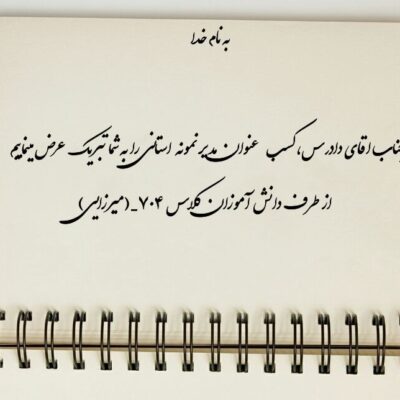 به نام خدا
جناب اقای دادرس، کسب عنوان مدیر نمونه استانی را به شما تبریک عرض مینماییم
از طرف دانش آموزان کلاس ۷۰۴_(میرزایی)